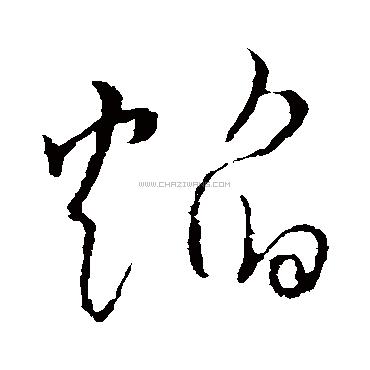 焰
WWW.CHAZIWANG.COM